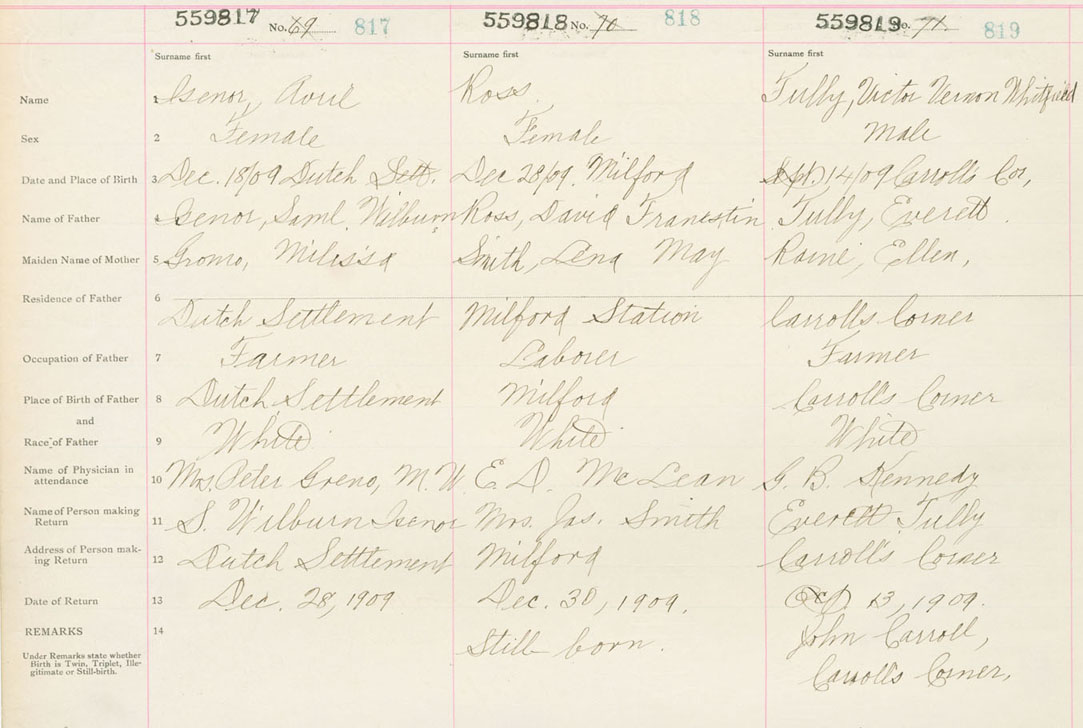 559817 No. 69 817 559818 No. 70 818 559819 No. 71 819
Surname first Surname first Surname first
Name 1 Isenor, Ross Tully, Victor Vernon Whitfield
Sex 2 Female Female Male
Date and Place of Birth 3 Dec. 18/09 Dutch Sett. Dec 28/09. Milford Sept. 14/09 Carroll's Cor.
Name of Father 4 Isenor, Saml. Wilburn Ross, David Tully, Everett
Maiden Name of Mother 5 Milissa Smith, Lena May Ellen,
Residence of Father 6
Dutch Settlement Milford Station Carrolls Corner
Occupation of Father 7 Farmer Laborer Farmer
Place of Birth of Father 8 Dutch Settlement Milford Carroll's Corner
and
Race of Father 9 White White White
Name of Physician in
attendance 10 Mrs. Peter Greno, M.W. E. D. McLean G. B. Kennedy
Name of Person making
Return 11 S. Wilburn Isenor Mrs. Jas. Smith Everett Tully
Address of Person mak-
ing Return 12 Dutch Settlement Milford Carroll's Corner
Date of Return 13 Dec. 28, 1909 Dec. 30, 1909. Oct. 13, 1909.
REMARKS 14 Still born. John Carroll,
Under Remarks state whether
Birth is Twin, Triplet, Ille-
gitimate or Still-birth.
Carroll's Corner,